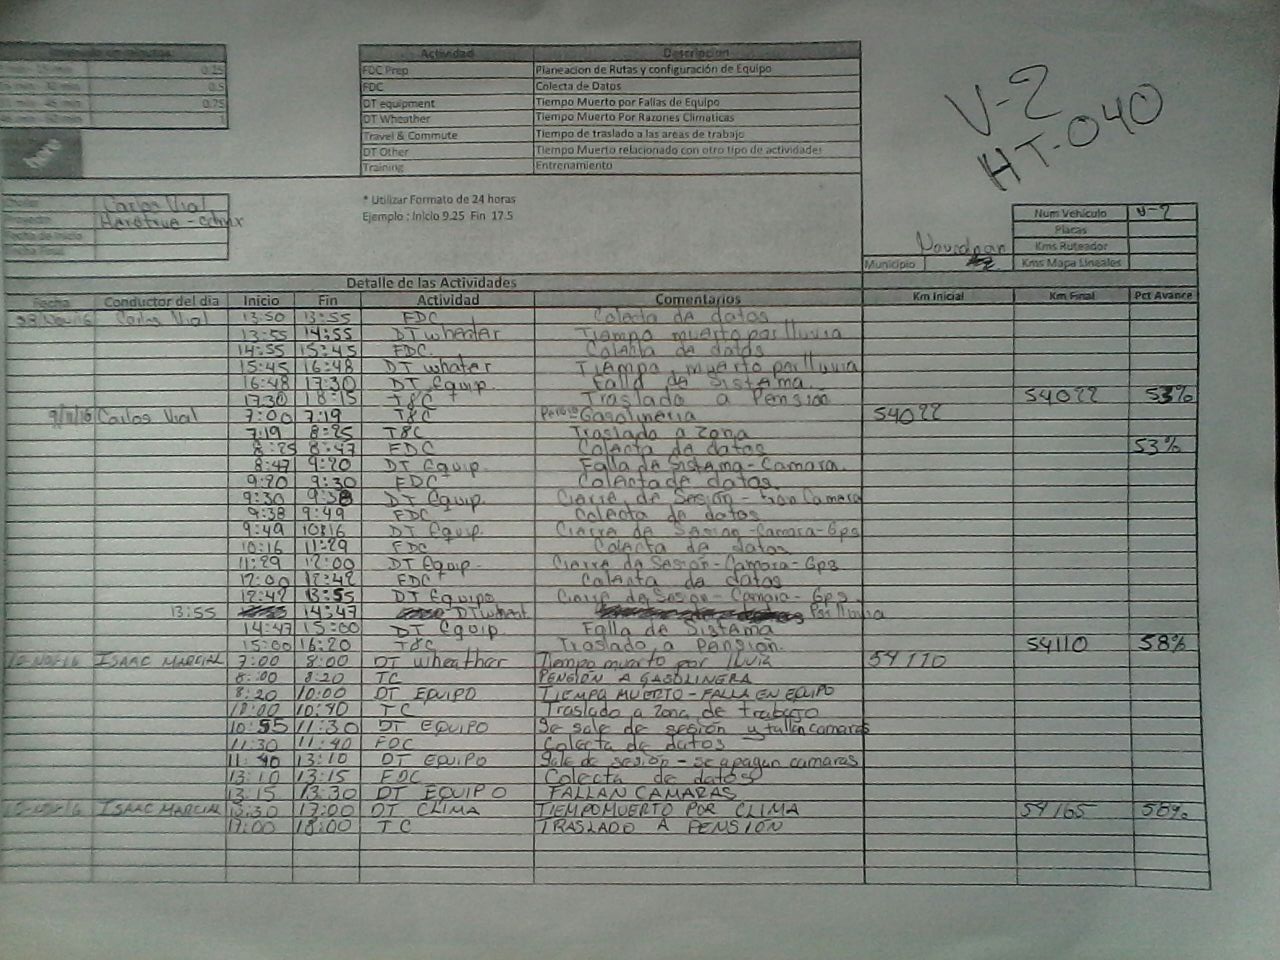 0.25
0.5
0.75
1
here
Actividad Descripcion
FDC Prep Planeacion de Rutas y configuración de Equipo
FDC Colecta de Datos
DT equipment Tiempo Muerto por Fallas de Equipo
DT Wheather Tiempo Muerto Por Razones Climaticas
Travel & Commute Tiempo de traslado a las areas de trabajo
DT Other Tiempo Muerto relacionado con otro tipo de actividades
Training Entrenamiento
V-2
HT-040
* Utilizar Formato de 24 horas
Ejemplo : Inicio 9.25 Fin 17.5
Carlos Vial
Fecha de Inicio
Num Vehículo V-2
Placas
Kms Ruteador
Municipio Kms Mapa Lineales
Detalle de las Actividades
Fecha Conductor del dia Inicio Fin Actividad Comentarios Km Inicial Km Final Pct Avance
Carlos Vial 13:50 13:55 FDC Colecta de datos
13:55 14:55 DT wheater Tiempo muerto por lluvia
14:55 15:45 FDC Colecta de datos
15:45 16:48 DT whater Tiempo muerto por lluvia
16:48 17:30 DT Equip. Falla de Sistema
17:30 18:15 T&C Traslado a Pension 54022 53%
9/11/16 Carlos Vial 7:00 7:19 T&C Gasolineria 54022
7:19 8:25 T&C Traslado a Zona
8:25 8:47 FDC Colecta de datos 53%
8:47 9:20 DT Equip. Falla de Sistema-Camara
9:20 9:30 FDC Colecta de datos
9:30 9:38 DT Equip. Cierre de Sesion - Camara
9:38 9:49 FDC Colecta de datos
9:49 10:16 DT Equip. Cierre de Sesino-Camara-Gps
10:16 11:29 FDC Colecta de datos
11:29 12:00 DT Equip. Cierre de Sesion-Camara-Gps
12:00 12:42 FDC Colecta de datos
12:42 13:55 DT Equipo Cierre de Sesion-Camara-Gps
13:55 14:47 DT Por lluvia
14:47 15:00 DT Equip. Falla de Sistema
15:00 16:20 T&C Traslado a Pension. 54110 58%
ISAAC MARCIAL 7:00 8:00 DT wheather Tiempo muerto por lluvia 54110
8:00 8:20 TC PENSIÓN A GASOLINERA
8:20 10:00 DT EQUIPO TIEMPO MUERTO-FALLA EN EQUIPO
10:00 TC Traslado a zona de trabajo
10:55 11:30 DT EQUIPO Se sale de sesión y fallan camaras
11:30 11:40 FDC Colecta de datos
11:40 13:10 DT EQUIPO Sale de sesión - se apagan camaras
13:10 13:15 FDC Colecta de datos
13:15 13:30 DT EQUIPO FALLAN CAMARAS
ISAAC MARCIAL 13:30 17:00 DT CLIMA TIEMPO MUERTO POR CLIMA 54165
17:00 18:00 TC TRASLADO A PENSIÓN